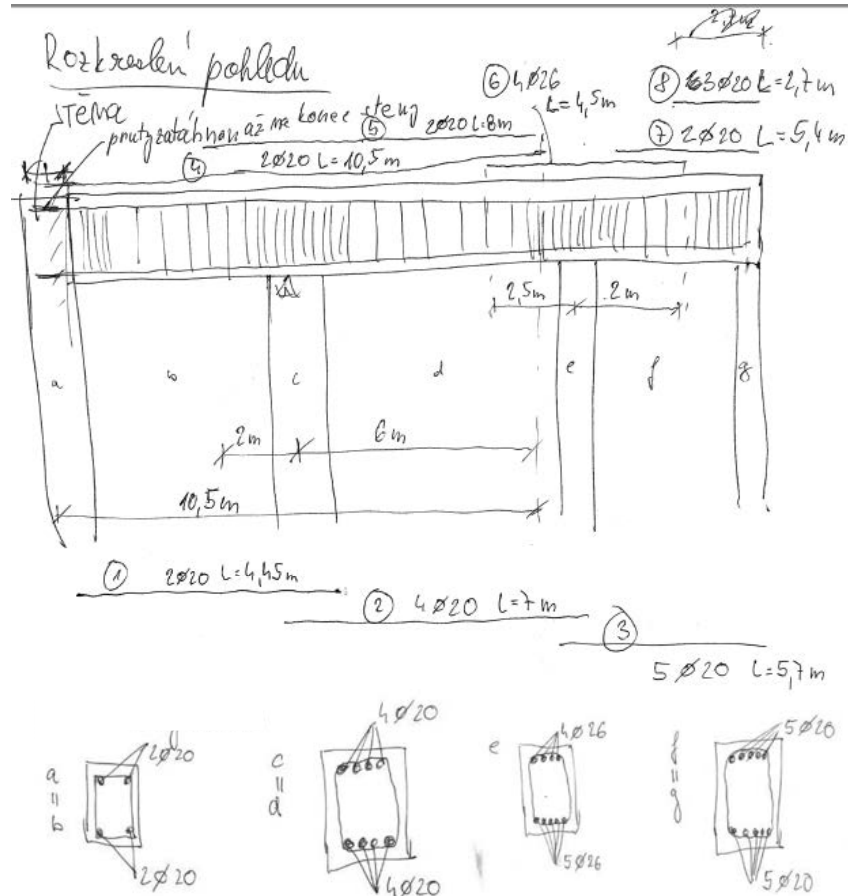 Rozkreslení pohledu
STĚNA
pruty zatáhnout až na konec stěny
⑤ 2ø20 L=8m
④ 2ø20 L=10,5m
⑥ 4ø26
L=4,5m
⑧ 3ø20 L=2,7m
⑦ 2ø20 L=5,4m
2,5m
2m
a
b
c
d
e
f
g
2m
6m
10,5m
① 2ø20 L=4,45m
② 4ø20 L=7m
③
5ø20 L=5,7m
a = b
2ø20
2ø20
c = d
4ø20
4ø20
e
4ø26
5ø26
f = g
5ø20
5ø20